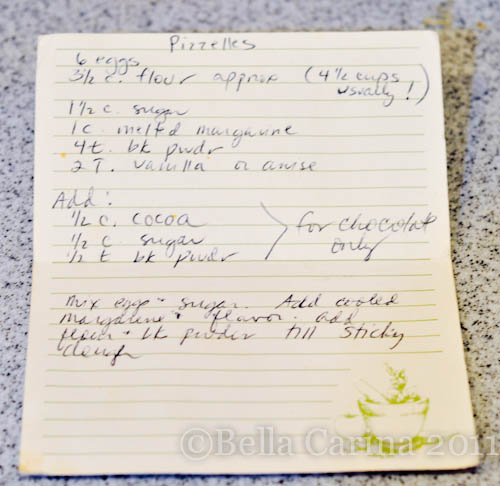 Pizzelles
6 eggs
3½ c. flour approx (4½ cups
usually!)
1½ c. sugar
1 c. melted margarine
4 t. bk pwdr
2 T. vanilla or anise
Add:
½ c. cocoa
½ c. sugar
½ t bk pwdr
for chocolate
only
mix eggs + sugar. Add cooled
margarine + flavor. add
flour + bk powder till sticky
dough
©Bella Carina 2011